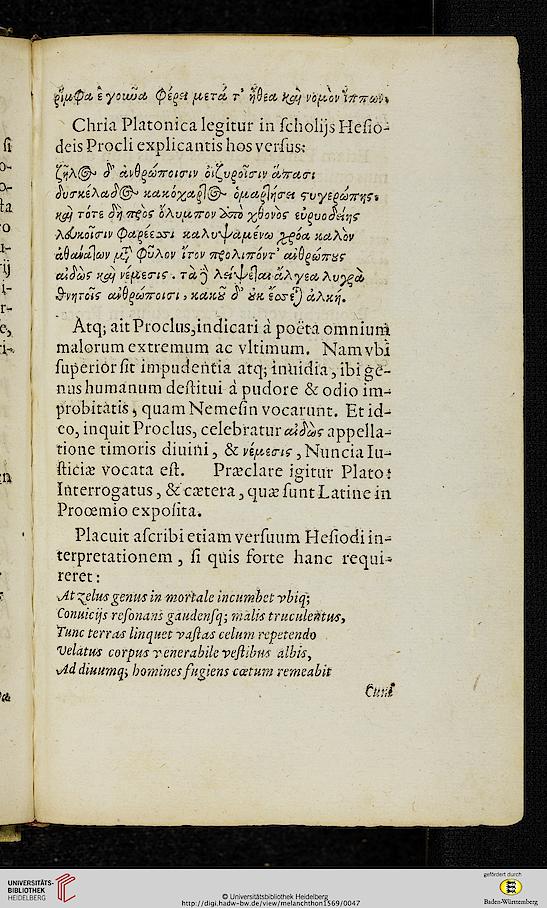 ῥίμφα ἑ γούνα φέρει μετά τ' ἤθεα καὶ νομὸν ἵππων.
Chria Platonica legitur in ſcholijs Heſio-
deis Procli explicantis hos verſus:
ζῆλος δ' ἀνθρώποισιν ὀϊζυροῖσιν ἅπασι
δυσκέλαδος κακόχαρτος ὁμαρτήσει στυγερώπης.
καὶ τότε δὴ πρὸς ὄλυμπον ἀπὸ χθονὸς εὐρυοδείης
λευκοῖσιν φαρέεσσι καλυψαμένω χρόα καλὸν
ἀθανάτων μετὰ φῦλον ἴτον προλιπόντ' ἀνθρώπους
αἰδὼς καὶ νέμεσις. τὰ δὲ λείψεται ἄλγεα λυγρὰ
θνητοῖς ἀνθρώποισι, κακοῦ δ' οὐκ ἔσσεται ἀλκή.
Atq; ait Proclus, indicari à poëta omnium
malorum extremum ac vltimum. Nam vbi
ſuperior ſit impudentia atq; inuidia, ibi ge-
nus humanum deſtitui à pudore & odio im-
probitatis, quam Nemeſin vocarunt. Et id-
eo, inquit Proclus, celebratur αἰδὼς appella-
tione timoris diuini, & νέμεσις, Nuncia Iu-
ſticiæ vocata eſt. Præclare igitur Plato:
Interrogatus, & cætera, quæ ſunt Latine in
Proœmio expoſita.
Placuit aſcribi etiam verſuum Heſiodi in-
terpretationem, ſi quis forte hanc requi-
reret:
At zelus genus in mortale incumbet vbiq;
Conuicijs reſonans gaudenſq; malis truculentus,
Tunc terras linquet vaſtas celum repetendo
Velatus corpus venerabile veſtibus albis,
Ad diuumq; homines fugiens cœtum remeabit
Cum
UNIVERSITÄTS-
BIBLIOTHEK
HEIDELBERG
© Universitätsbibliothek Heidelberg
http://digi.hadw-bw.de/view/melanchthon1569/0047
gefördert durch
Baden-Württemberg